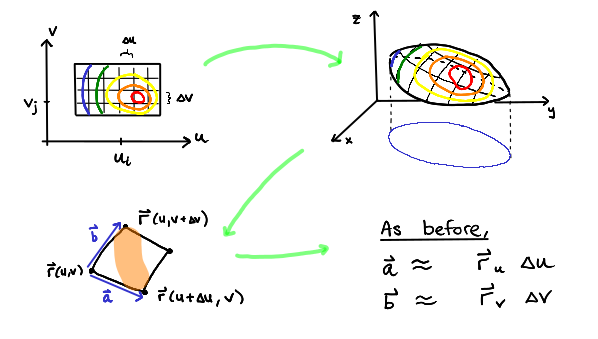 Δu
v
Δv
vⱼ
uᵢ
u
z
y
x
b⃗
r⃗(u,v+Δv)
r⃗(u,v)
a⃗
r⃗(u+Δu, v)
As before,
a⃗ ≈ r⃗ᵤ Δu
b⃗ ≈ r⃗ᵥ Δv